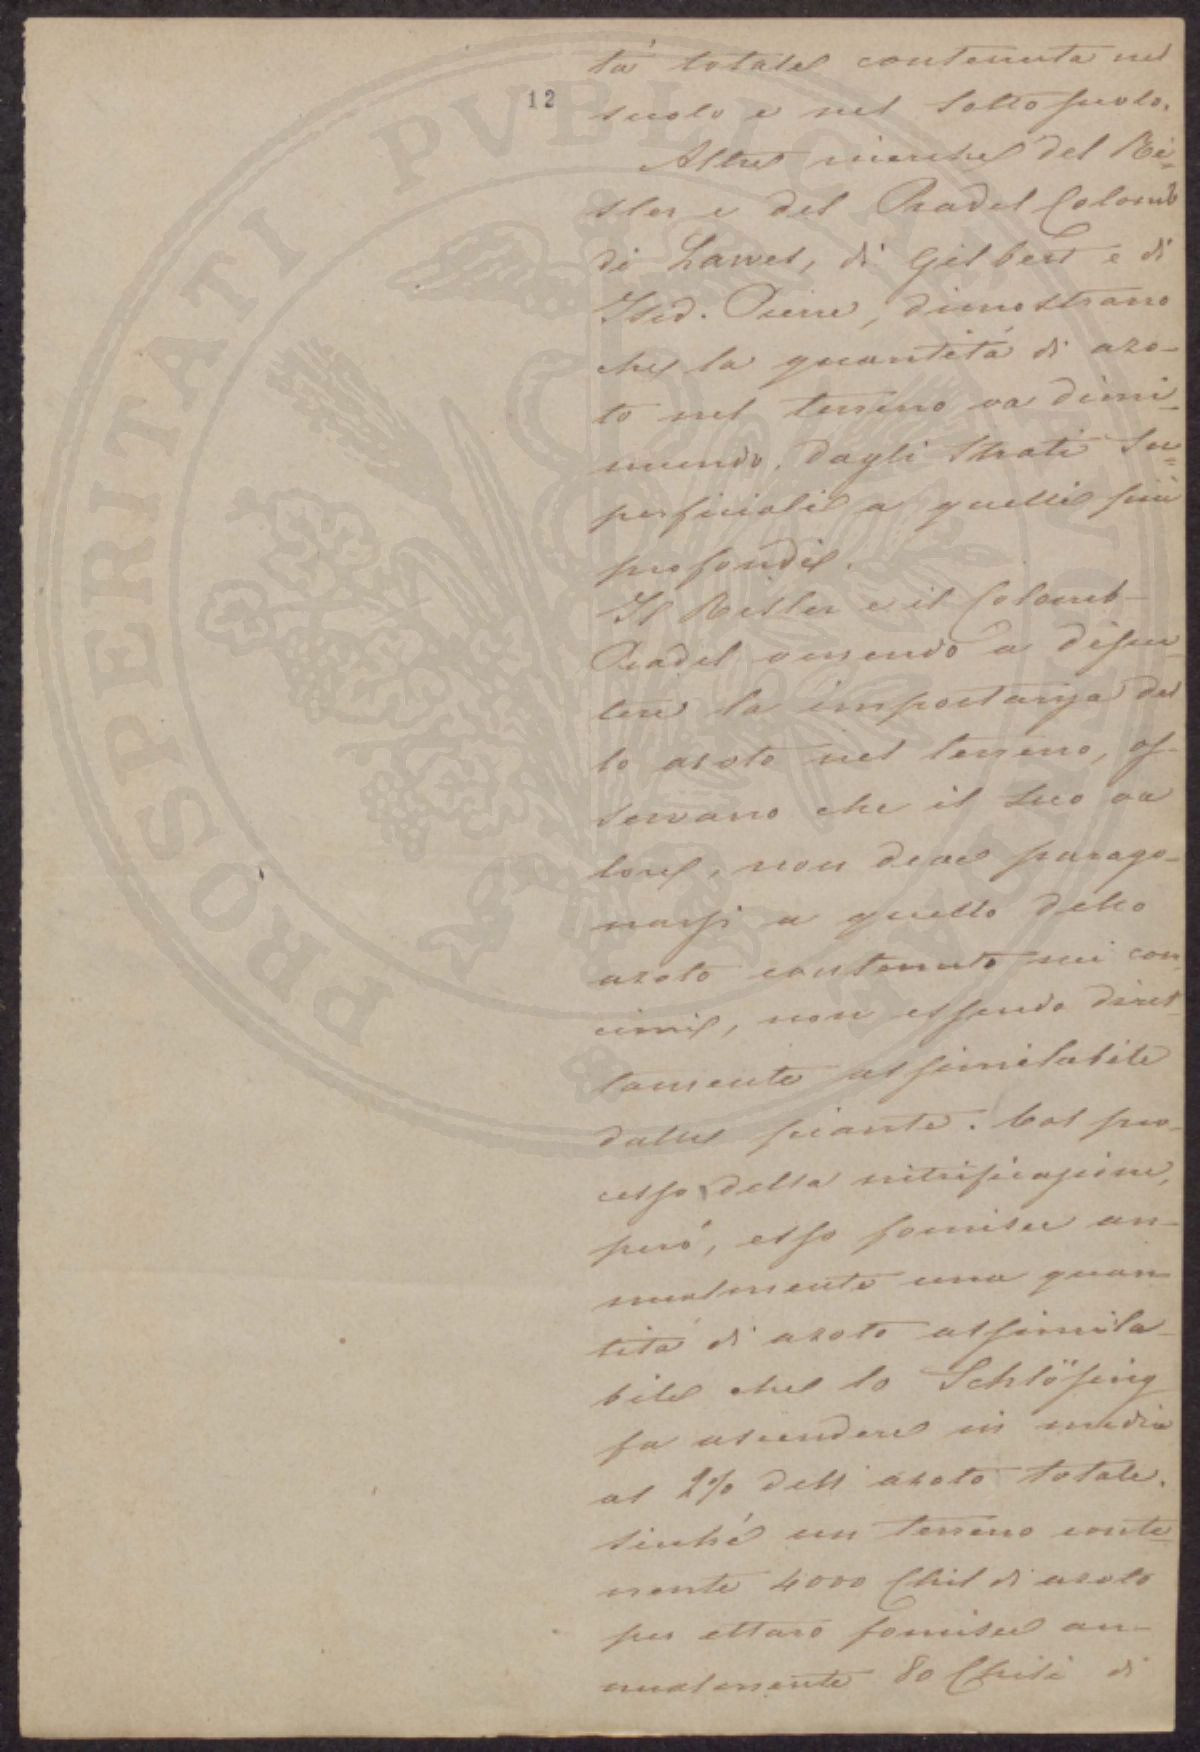 12
tá totale contenuta nel
suolo e nel Sottosuolo.
Altre ricerche del Ri=
sler e del Pradel Colomb
di Lawes, di Gilbert e di
Isid. Pierre, dimostrano
che la quantitá di azo-
to nel terreno va dimi-
nuendo dagli Strati Su=
perficiali a quelli più
profondi.
Il Risler e il Colomb-
Pradel venendo a discu-
tere la importanza del
lo azoto nel terreno, os-
servano che il suo va
lore, non deve parago-
narsi a quello dello
azoto contenuto nei con-
cimi, non essendo diret-
tamente assimilabile
dalle piante. Col pro-
cesso della nitrificazione,
però, esso fornisce an-
nualmente una quan
titá di azoto assimila-
bile che lo Schlösing
fa ascendere in media
al 2% dell'azoto totale.
Sicché un terreno conte=
nente 4000 Chil di azoto
per ettaro fornisce an-
nualmente 80 Chili di
PROSPERITATI PVBLICAE